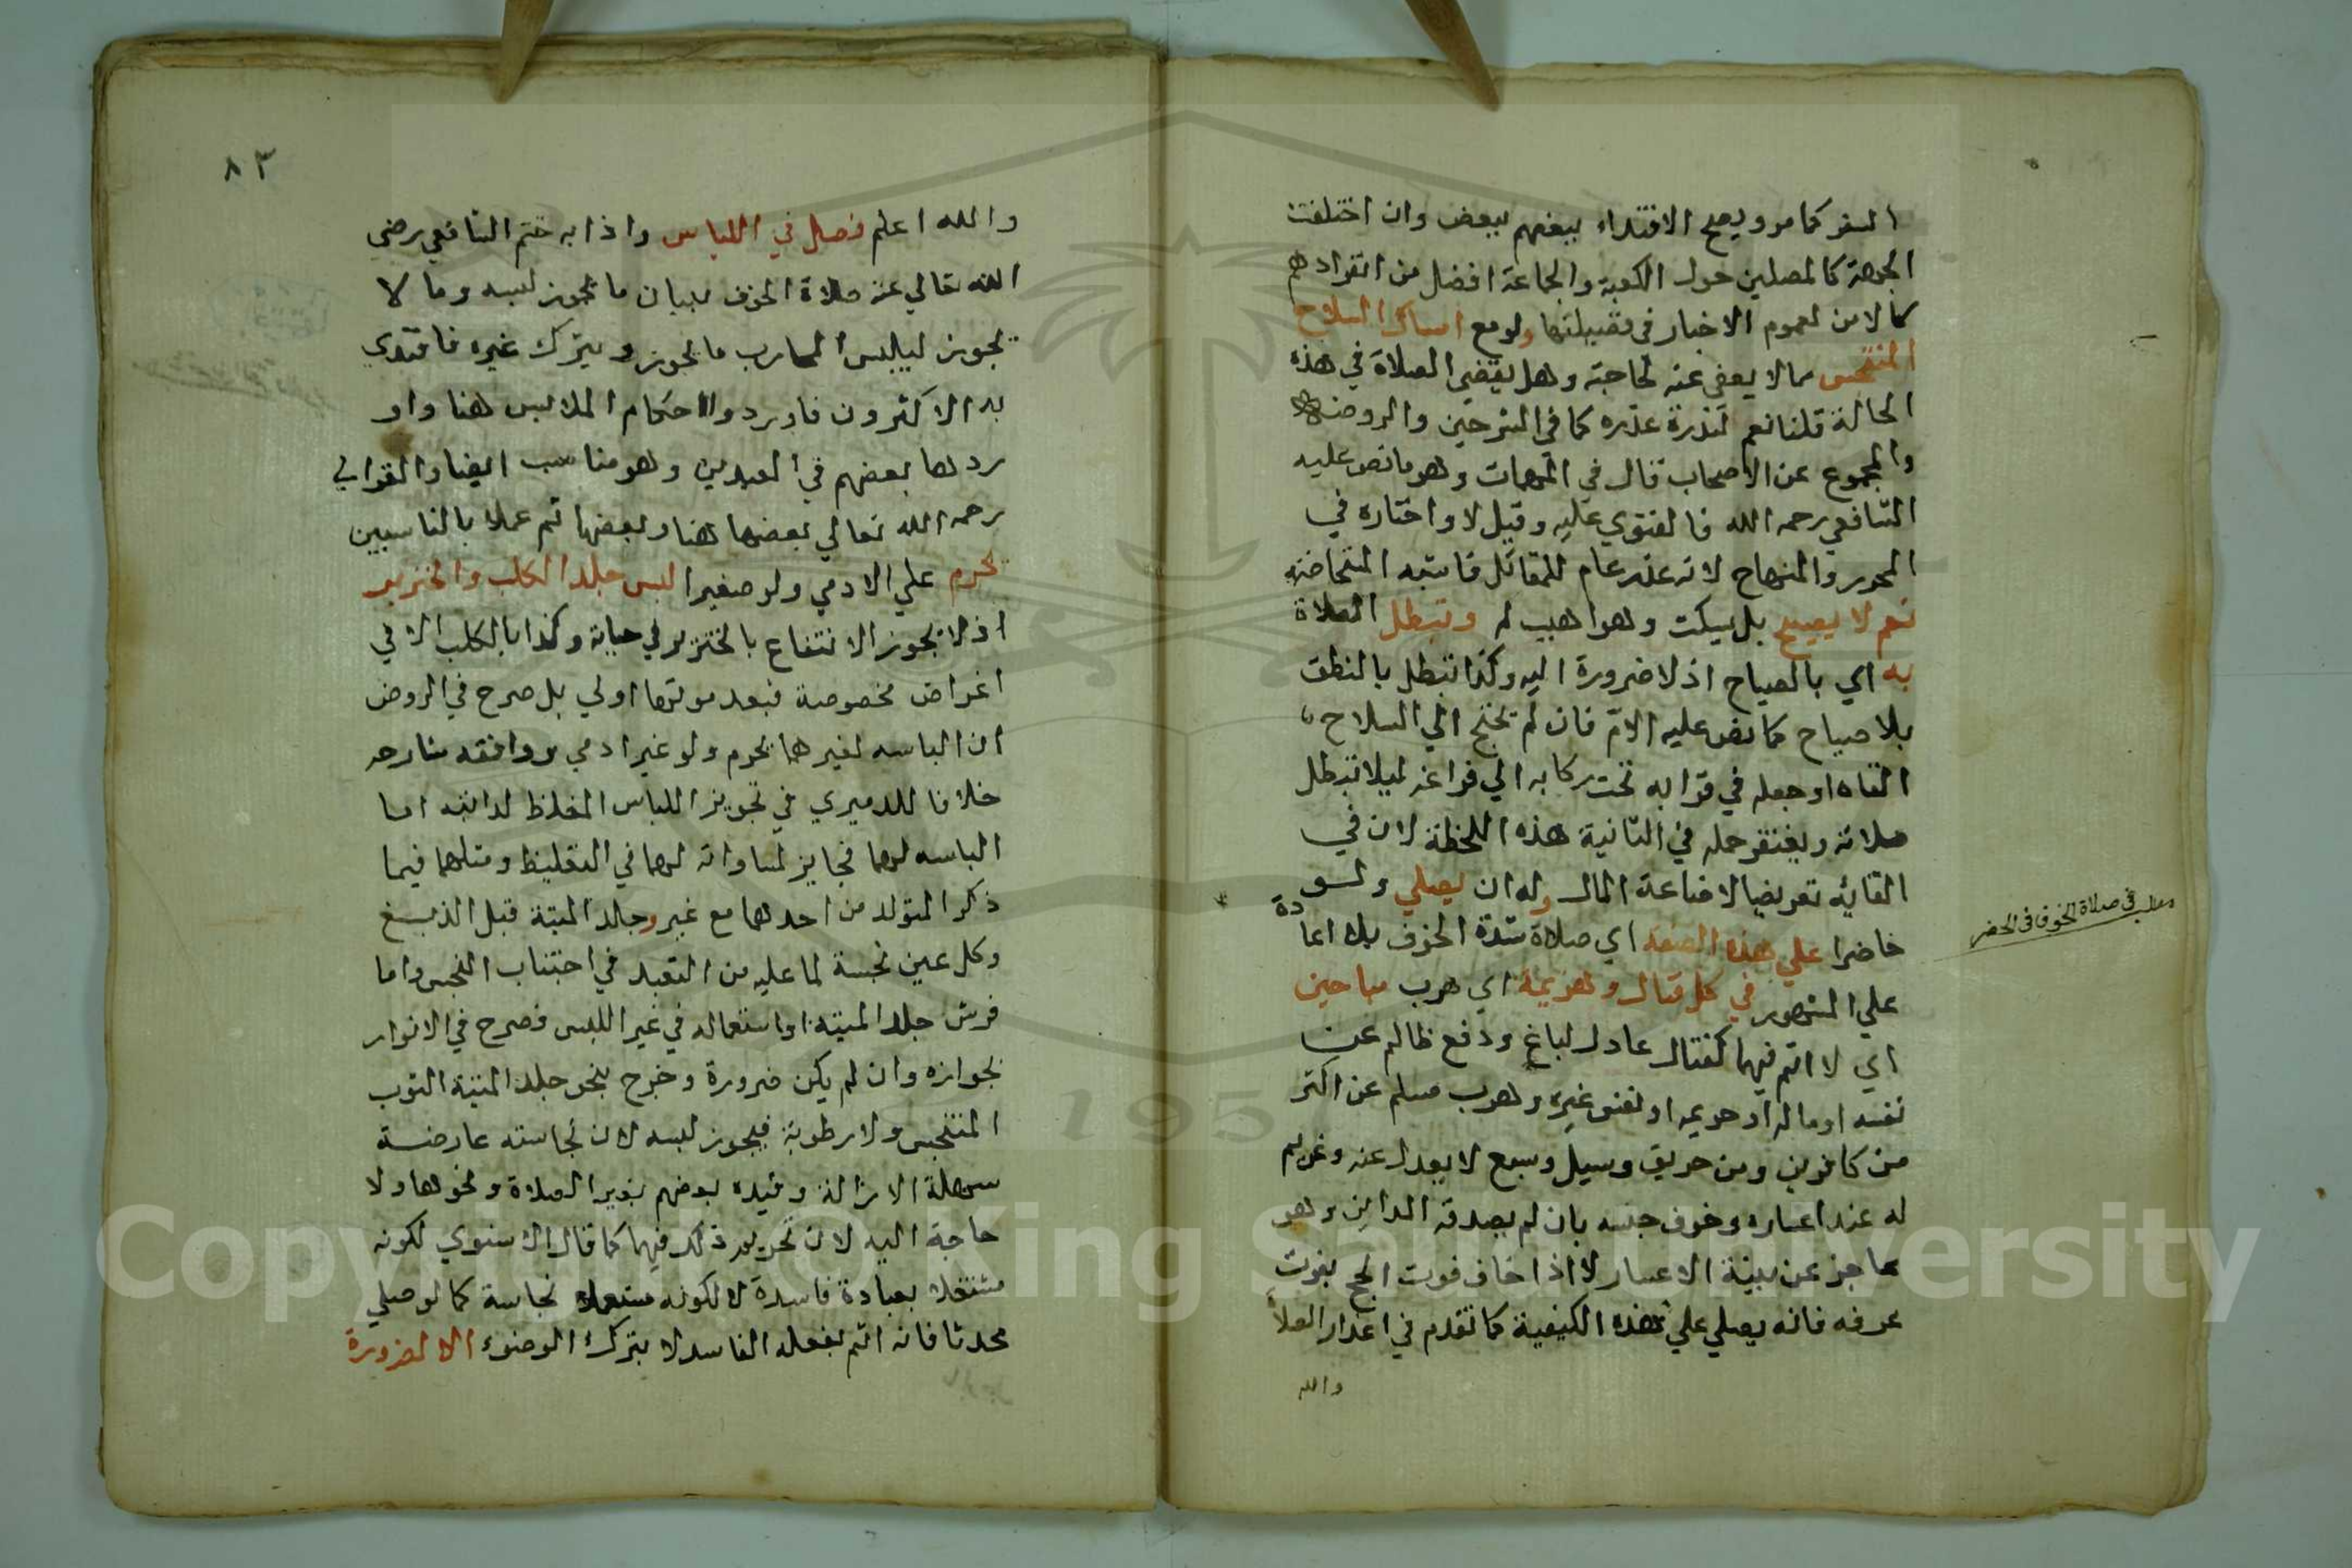 السفر كما مر ويصح الاقتداء ببعضهم ببعض وان اختلفت
الجهة كالمصلين حول الكعبة والجماعة افضل من انفرادهم
كالامن لعموم الاخبار في فضيلتها ولو مع امساك السلاح
المتنجس مما لا يعفى عنه لحاجته وهل يقضي الصلاة في هذه
الحالة قلنا نعم لندرة عذره كما في الشرحين والروضه
والمجموع عن الاصحاب قال في المهمات وهو ما نص عليه
الشافعي رحمه الله فالفتوي عليه وقيل لا واختاره في
المحرر والمنهاج لانه عذر عام للمقاتل فاشبه المتحاضة
نعم لا يصيح بل يسكت وهو اهيب له وتبطل الصلاة
به اي بالصياح اذ لا ضرورة اليه وكذا تبطل بالنطق
بلا صياح كما نص عليه الام فان لم يحتج الي السلاح
القاه او جعله في قرابه تحت ركابه الي فراغه ليلا تبطل
صلاته ويغتفر حمله في الثانية هذه اللحظة لان في
القايه تعريضا لاضاعة المال وله ان يصلي ولو
حاضرا علي هذه الصفة اي صلاة شدة الخوف بلا اعادة
علي المشهور في كل قتال وهزيمة اي هرب مباحين
اي لا اثم فيهما كقتال عادل لباغ ودفع ظالم عن
نفسه او ماله او حريمه او نفس غيره وهرب مسلم عن اكثر
من كافرين ومن حريق وسيل وسبع لا يعدل عنه وغريم
له عند اعساره وخوف حبسه بان لم يصدقه الداين وهو
عاجز عن بينة الاعسار لا اذا خاف فوت الحج بفوت
عرفه فانه يصلي علي هذه الكيفية كما تقدم في اعذار الصلا
والله
مطلب في صلاة الخوف في الحضر
٨٣
والله اعلم فصل في اللباس واذا به ختم الشافعي رضي
الله تعالي عنه صلاة الخوف ببيان ما يجوز لبسه وما لا
يجوز ليلبس المحارب ما يجوز ويترك غيره فاقتدي
به الاكثرون فاوردوا احكام الملابس هنا واو
ردها بعضهم في العيدين وهو مناسب ايضا والغزالي
رحمه الله تعالي بعضها هنا وبعضها ثم عملا بالمناسبين
يحرم علي الادمي ولو صغيرا لبس جلد الكلب والخنزير
اذ لا يجوز الانتفاع بالخنزير في حياته وكذا بالكلب الا في
اغراض مخصوصة فبعد موتهما اولي بل صرح في الروض
ان الباسه لغيرهما يحرم ولو غير ادمي ووافقه شارحه
خلافا للدميري في تجويز اللباس المغلظ لدابته اما
الباسه لهما فجايز لمساواته لهما في التغليظ ومثلهما فيما
ذكر المتولد من احدهما مع غير وجلد الميتة قبل الدبغ
وكل عين نجسة لما عليه من التعبد في اجتناب النجس واما
فرش جلد الميتة او استعماله في غير اللبس فصرح في الانوار
بجوازه وان لم يكن ضرورة وخرج بنحو جلد الميتة الثوب
المتنجس ولا رطوبة فيجوز لبسه لان نجاسته عارضة
سهلة الازالة وقيده بعضهم بغير الصلاة ونحوها ولا
حاجة اليه لان تحريم ذلك فيهما كما قال الاسنوي لكونه
مشتغلا بعبادة فاسدة لا لكونه مستعملا نجاسة كما لو صلي
محدثا فانه اثم بفعله الفاسد لا بترك الوضوء الا لضرورة
Copyright © King Saud University
195